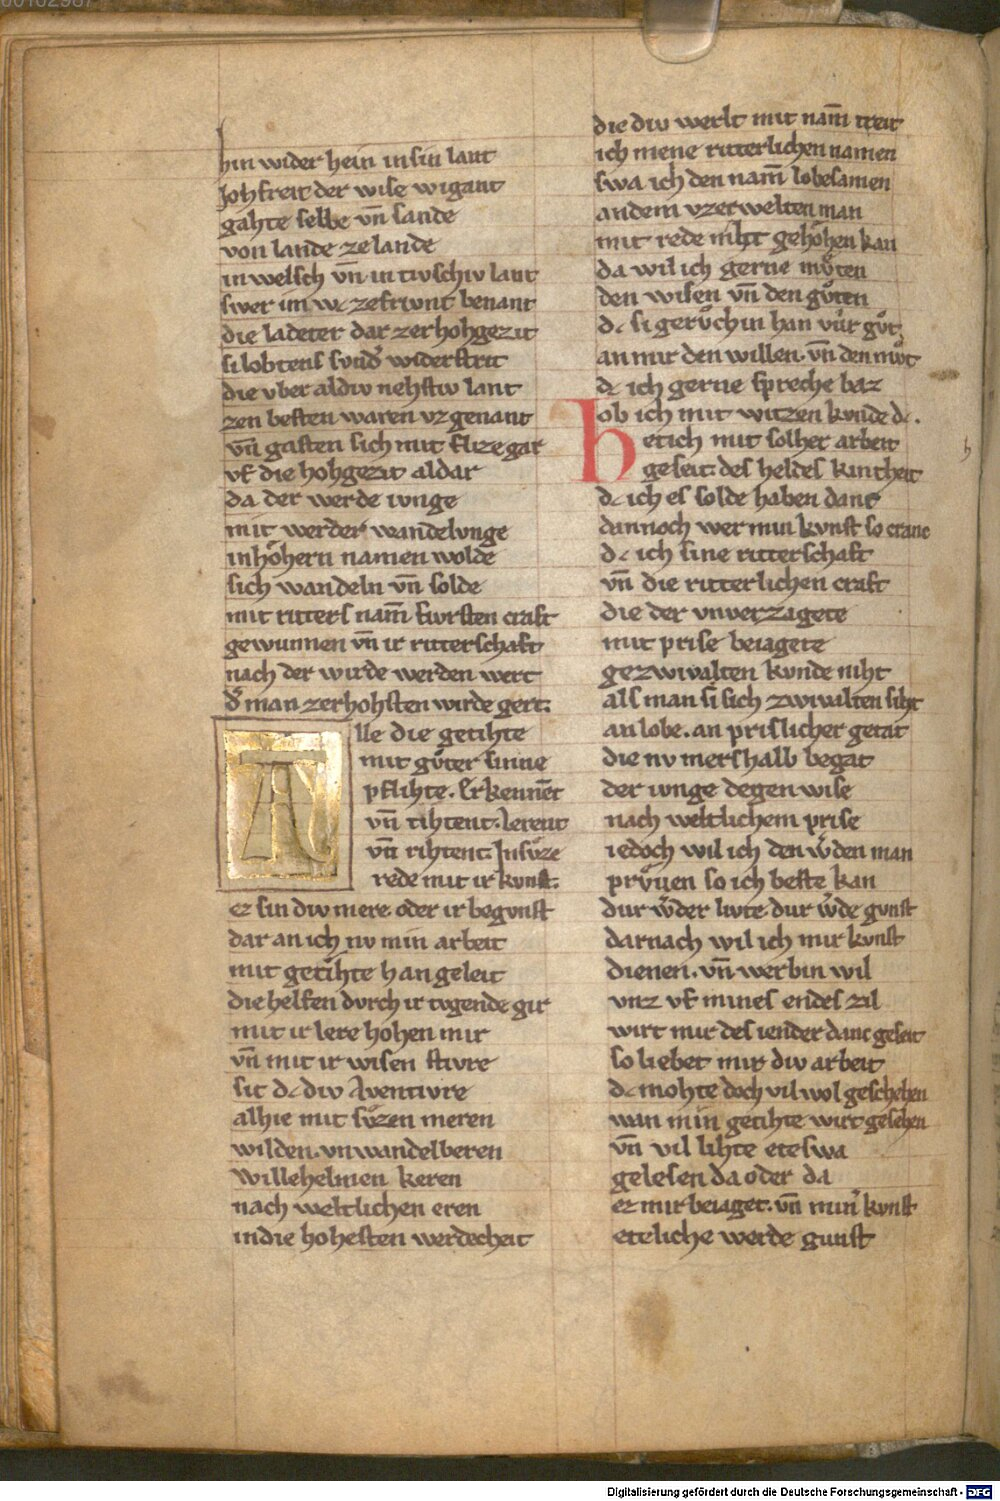 hin wider hein in sin lant
Johfreit der wise wigant
gahte selbe vn̄ sande
von lande ze lande
in welsch vn̄ in tivschiv lant
swer im wc ze frivnt benant
die ladeter dar zer hohgezit
si lobtens svnd͛ widerstrit
die vber aldiv nehstiv lant
zen besten waren vz genant
vn̄ gasten sich mit flize gar
vf die hohgezit aldar
da der werde ivnge
mit werder wandelvnge
in hoͤhern namen wolde
sich wandeln vn̄ solde
mit ritters nam̄ fvrsten craft
gewunnen vn̄ ir ritterschaft
nach der wirde werden wert
d͛ man zer hohsten wirde gert.
Alle die getihte
mit guͦter sinne
pflihte. Erkennēt
vn̄ tihtent. lerent
vn̄ rihtent. In suͤze
rede mit ir kvnst.
ez sin div mere oder ir begvnst
dar an ich nv min arbeit
mit getihte han geleit
die helfen dvrch ir tvgende gir
mit ir lere hohen mir
vn̄ mit ir wisen stivre
sit dc div Aventivre
alhie mit suͤzen meren
wilden. vnwandelberen
Willehelmen keren
nach weltlichen eren
in die hohesten werdecheit
die div werlt mit nam̄ treit
ich mene ritterlichen namen
swa ich den nam̄ lobesamen
an dem vzerwelten man
mit rede niht gehoͤhen kan
da wil ich gerne muͦten
den wisen vn̄ den guͦten
dc si geruͦchin han vuͤr guͦt
an mir den willen. vn̄ den muͦt
dc ich gerne spreche baz
ob ich mit witzen kvnde dc.
Het ich mit solher arbeit
geseit des heldes kintheit
dc ich es solde haben danc
dannoch wer min kvnst so cranc
dc ich sine ritterschaft
vn̄ die ritterlichen craft
die der vnverzagete
mit prise beiagete
gezwivalten kvnde niht
als man si sich zwivalten siht
an lobe. an prislicher getat
die nv mershalb begat
der ivnge degen wise
nach weltlichem prise
iedoch wil ich den w͛den man
pruͤuen so ich beste kan
dur w͛der livte. dur w͛de gvnst
darnach wil ich mir kvnst
dienen. vn̄ werbin wil
vnz vf mines endes zil
wirt mir des iender danc geseit
so liebet mir div arbeit
dc mohte doch vil wol geschehen
wan min getihte wirt gesehen
vn̄ vil lihte eteswa
gelesen da oder da
ez mir beiaget. vn̄ min͛ kvnst
eteliche werde gunst
Digitalisierung gefördert durch die Deutsche Forschungsgemeinschaft - DFG